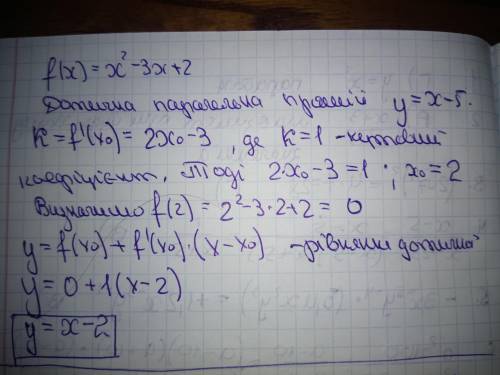 f(x) = x² - 3x + 2
Дотична паралельна прямій y = x - 5.
K = f'(x₀) = 2x₀ - 3, де K = 1 - кутовий
коефіцієнт. Тоді 2x₀ - 3 = 1; x₀ = 2
Визначимо f(2) = 2² - 3·2 + 2 = 0
y = f(x₀) + f'(x₀)·(x - x₀) - рівняння дотичної
y = 0 + 1(x - 2)
y = x - 2